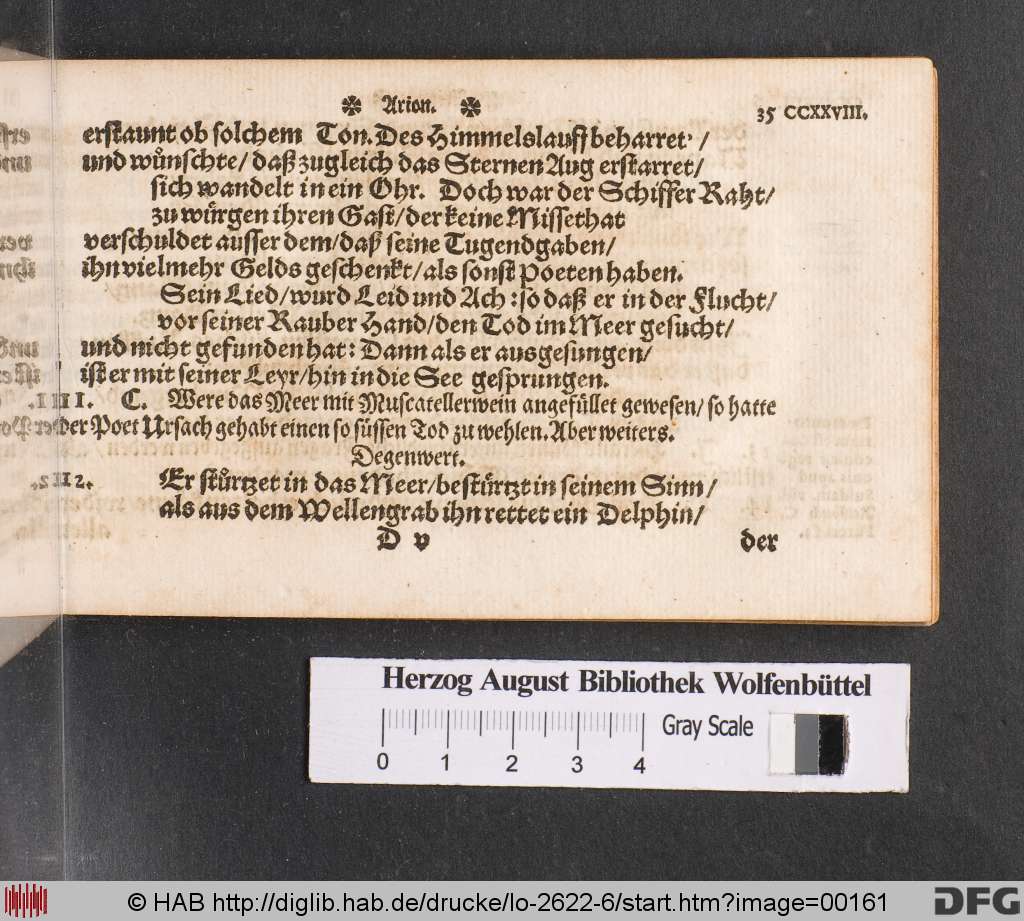 ✼ Arion. ✼
35 CCXXVIII.
erstaunt ob solchem Ton. Des Himmelslauff beharret /
und wůnschte / daß zugleich das Sternen Aug erstarret /
sich wandelt in ein Ohr. Doch war der Schiffer Raht /
zu würgen ihren Gast / der keine Missethat
verschuldet ausser dem / daß seine Tugendgaben /
ihn vielmehr Gelds geschenkt / als sonst Poeten haben.
Sein Lied / wurd Leid und Ach : so daß er in der Flucht /
vor seiner Rauber Hand / den Tod im Meer gesucht /
und nicht gefunden hat : Dann als er ausgesungen /
ist er mit seiner Leyr / hin in die See gesprungen.
C. Were das Meer mit Muscatellerwein angefüllet gewesen / so hatte
der Poet Ursach gehabt einen so süssen Tod zu wehlen. Aber weiters.
Degenwert.
Er stůrtzet in das Meer / bestürtzt in seinem Sinn /
als aus dem Wellengrab ihn rettet ein Delphin /
D v
der
Herzog August Bibliothek Wolfenbüttel
0 1 2 3 4
Gray Scale
© HAB http://diglib.hab.de/drucke/lo-2622-6/start.htm?image=00161
DFG